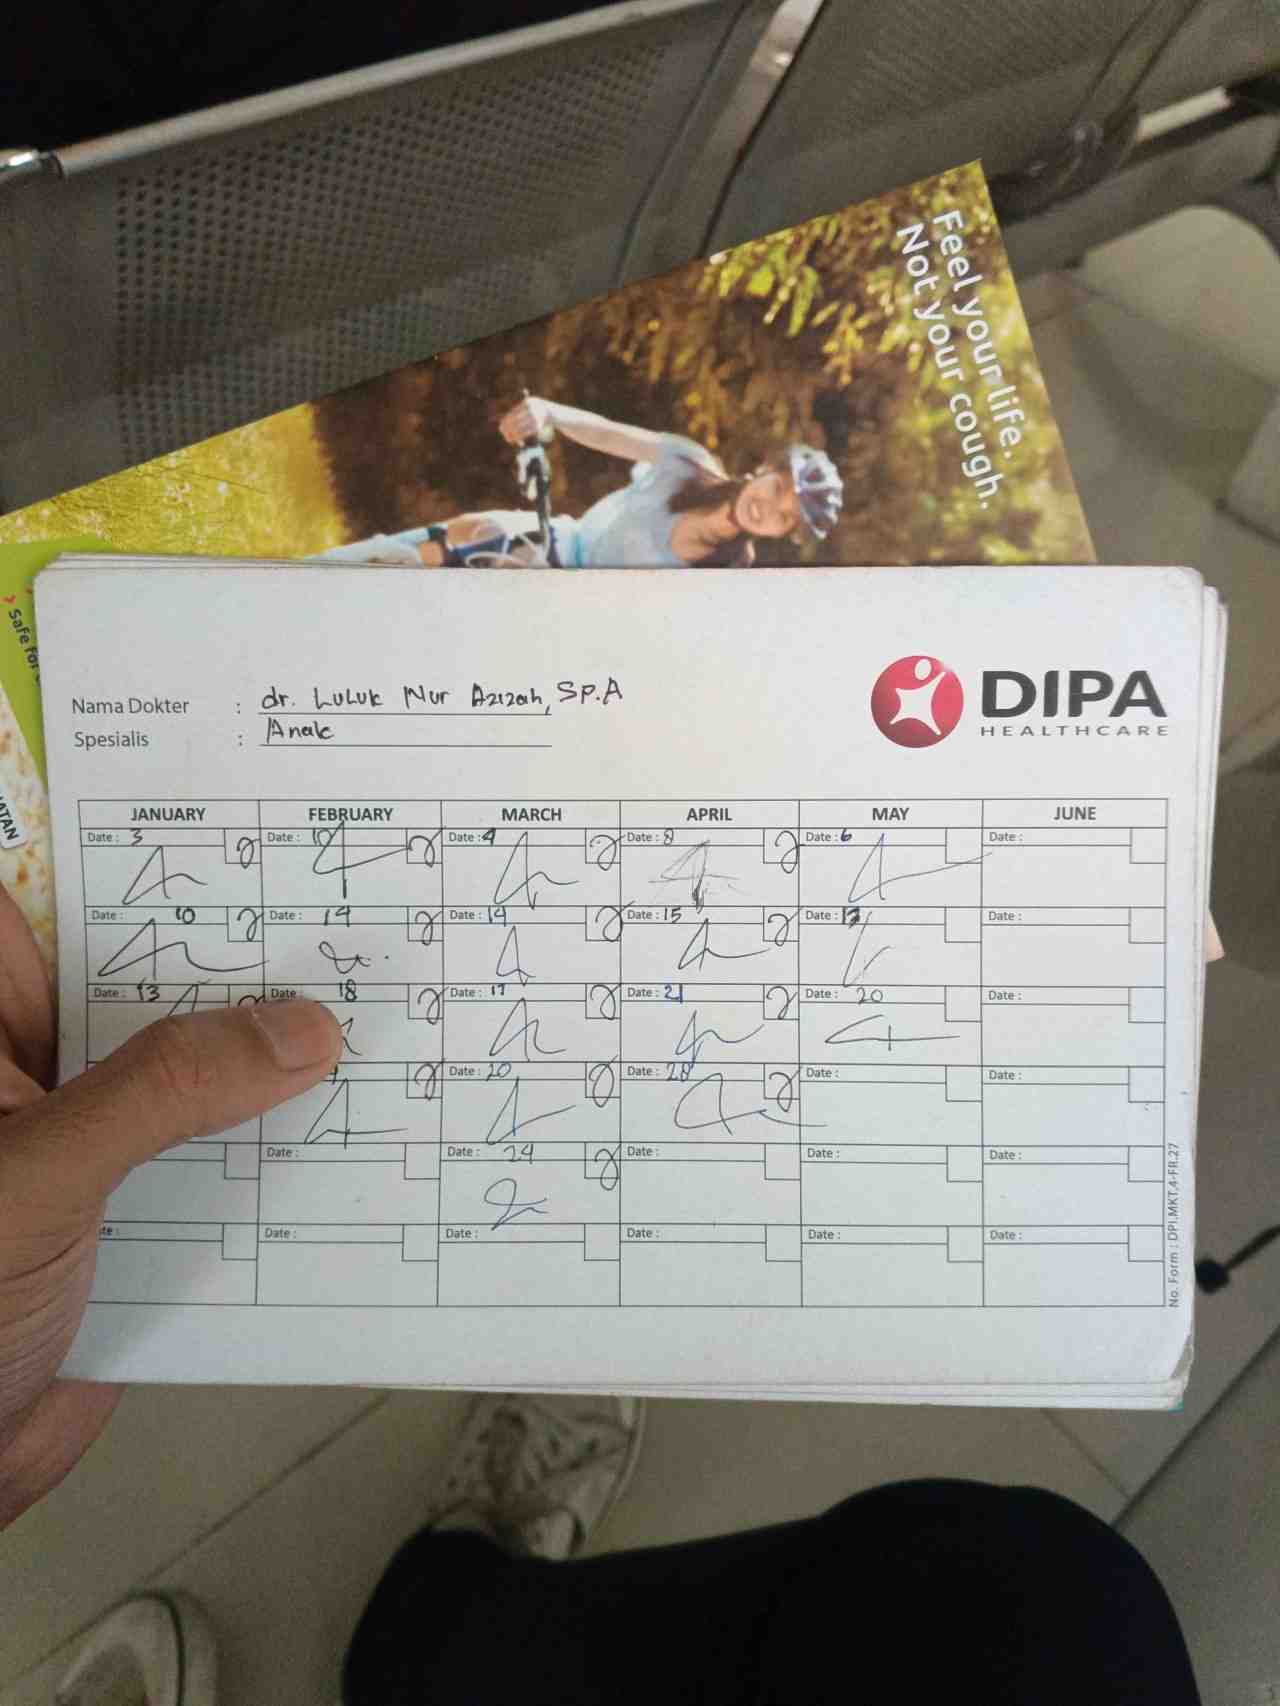 Feel your life.
Not your cough.
Safe for
ATAN
Nama Dokter : dr. Luluk Nur Azizah, Sp.A
Spesialis : Anak
DIPA
HEALTHCARE
JANUARY FEBRUARY MARCH APRIL MAY JUNE
Date : 3 Date : 10 Date : 4 Date : 8 Date : 6 Date :
Date : 10 Date : 14 Date : 14 Date : 15 Date : 13 Date :
Date : 13 Date : 18 Date : 17 Date : 21 Date : 20 Date :
Date : 20 Date : 28 Date : Date :
Date : Date : 24 Date : Date : Date :
Date : Date : Date : Date : Date :
No. Form : DPI.MKT.4-FR.27